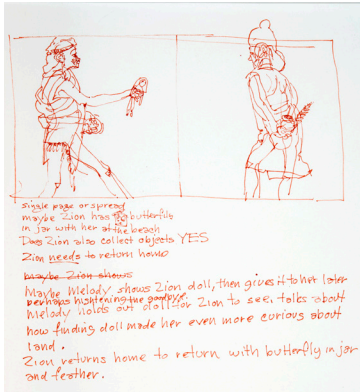 single page or spread
maybe Zion has big butterfly
in jar with her at the beach
Does Zion also collect objects YES
Zion needs to return home
maybe Zion shows
Maybe Melody shows Zion doll, then gives it to her later
perhaps hightening the goodbye.
Melody holds out doll for Zion to see, talks about
how finding doll made her even more curious about
land.
Zion returns home to return with butterfly in jar
and feather.